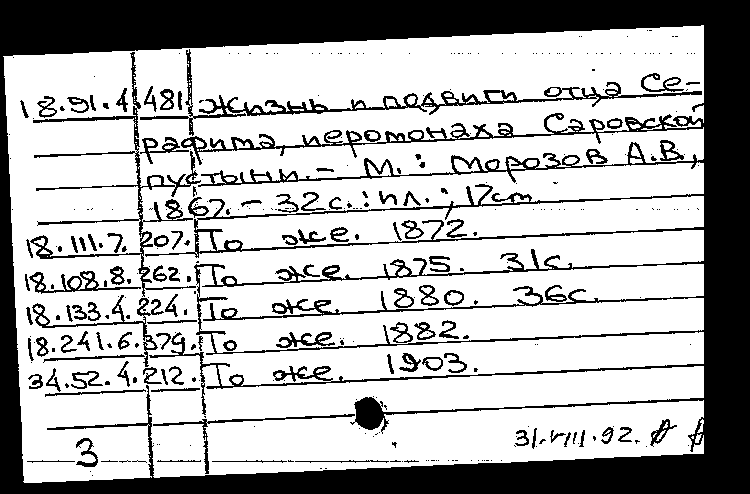 18.91.4.481. Жизнь и подвиги отца Се-
рафима, иеромонаха Саровской
пустыни. - М. : Морозов А.В.,
1867. - 32 с. : ил. ; 17 см
18.111.7.207. То же. 1872.
18.108.8.262. То же. 1875. 31с.
18.133.4.224. То же. 1880. 36с.
18.241.6.379. То же. 1882.
34.52.4.212. То же. 1903.
3 31.VIII.92.